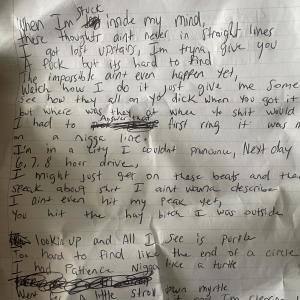 When I'm stuck inside my mind,
these thoughts aint never in straight lines
I got lost upstairs, I'm tryna give you
a fuck but its hard to find
The impossible aint even happen yet,
Watch how I do it just give me some
see how they all on yo dick when you got it
but where was they at when yo shit would
I had to Answered first ring it was
on a nigga line,
I'm in a city I couldnt pronounce, Next day
6, 7, 8 hour drive,
I might just get on these beats and the
speak about shit I aint wanna describe
I aint even hit my peak yet,
You hit the hay bitch I was outside
lookin up and All I see is purple
Too hard to find like the end of a circle
I had Patience Nigga like a turtle
Went for A little stroll down myrtle